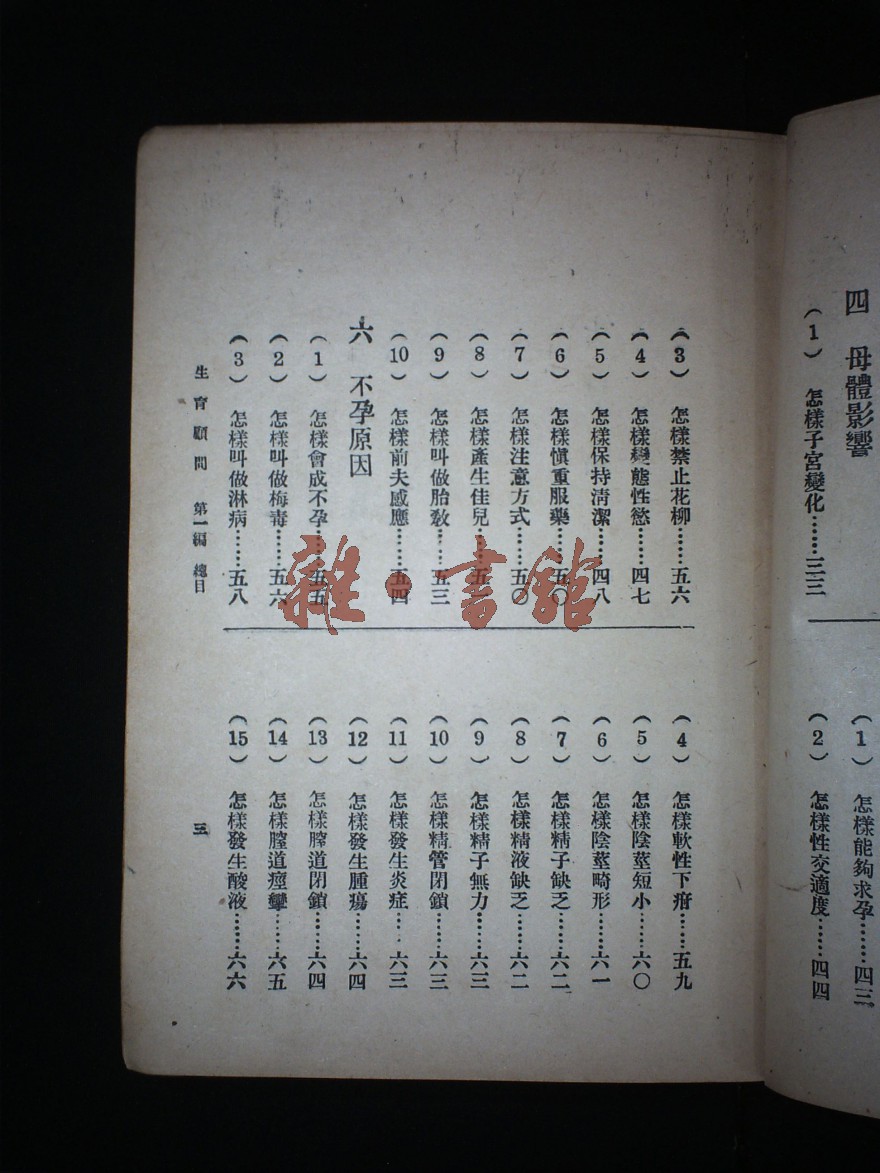 四　母體影響
(1)　怎樣子宮變化……三三
(1)　怎樣能夠求孕……四三
(2)　怎樣性交適度……四四
(3)　怎樣禁止花柳……五六
(4)　怎樣變態性慾……四七
(5)　怎樣保持清潔……四八
(6)　怎樣愼重服藥……五〇
(7)　怎樣注意方式……五〇
(8)　怎樣產生佳兒……五
(9)　怎樣叫做胎敎……五三
(10)　怎樣前夫感應……五四
六　不孕原因
(1)　怎樣會成不孕……五五
(2)　怎樣叫做梅毒……五六
(3)　怎樣叫做淋病……五八
(4)　怎樣軟性下疳……五九
(5)　怎樣陰莖短小……六〇
(6)　怎樣陰莖畸形……六一
(7)　怎樣精子缺乏……六二
(8)　怎樣精液缺乏……六二
(9)　怎樣精子無力……六三
(10)　怎樣精管閉鎖……六三
(11)　怎樣發生炎症……六三
(12)　怎樣發生腫瘍……六四
(13)　怎樣膣道閉鎖……六四
(14)　怎樣膣道痙攣……六五
(15)　怎樣發生酸液……六六
生育顧問　第一編　總目　三
雜·書館